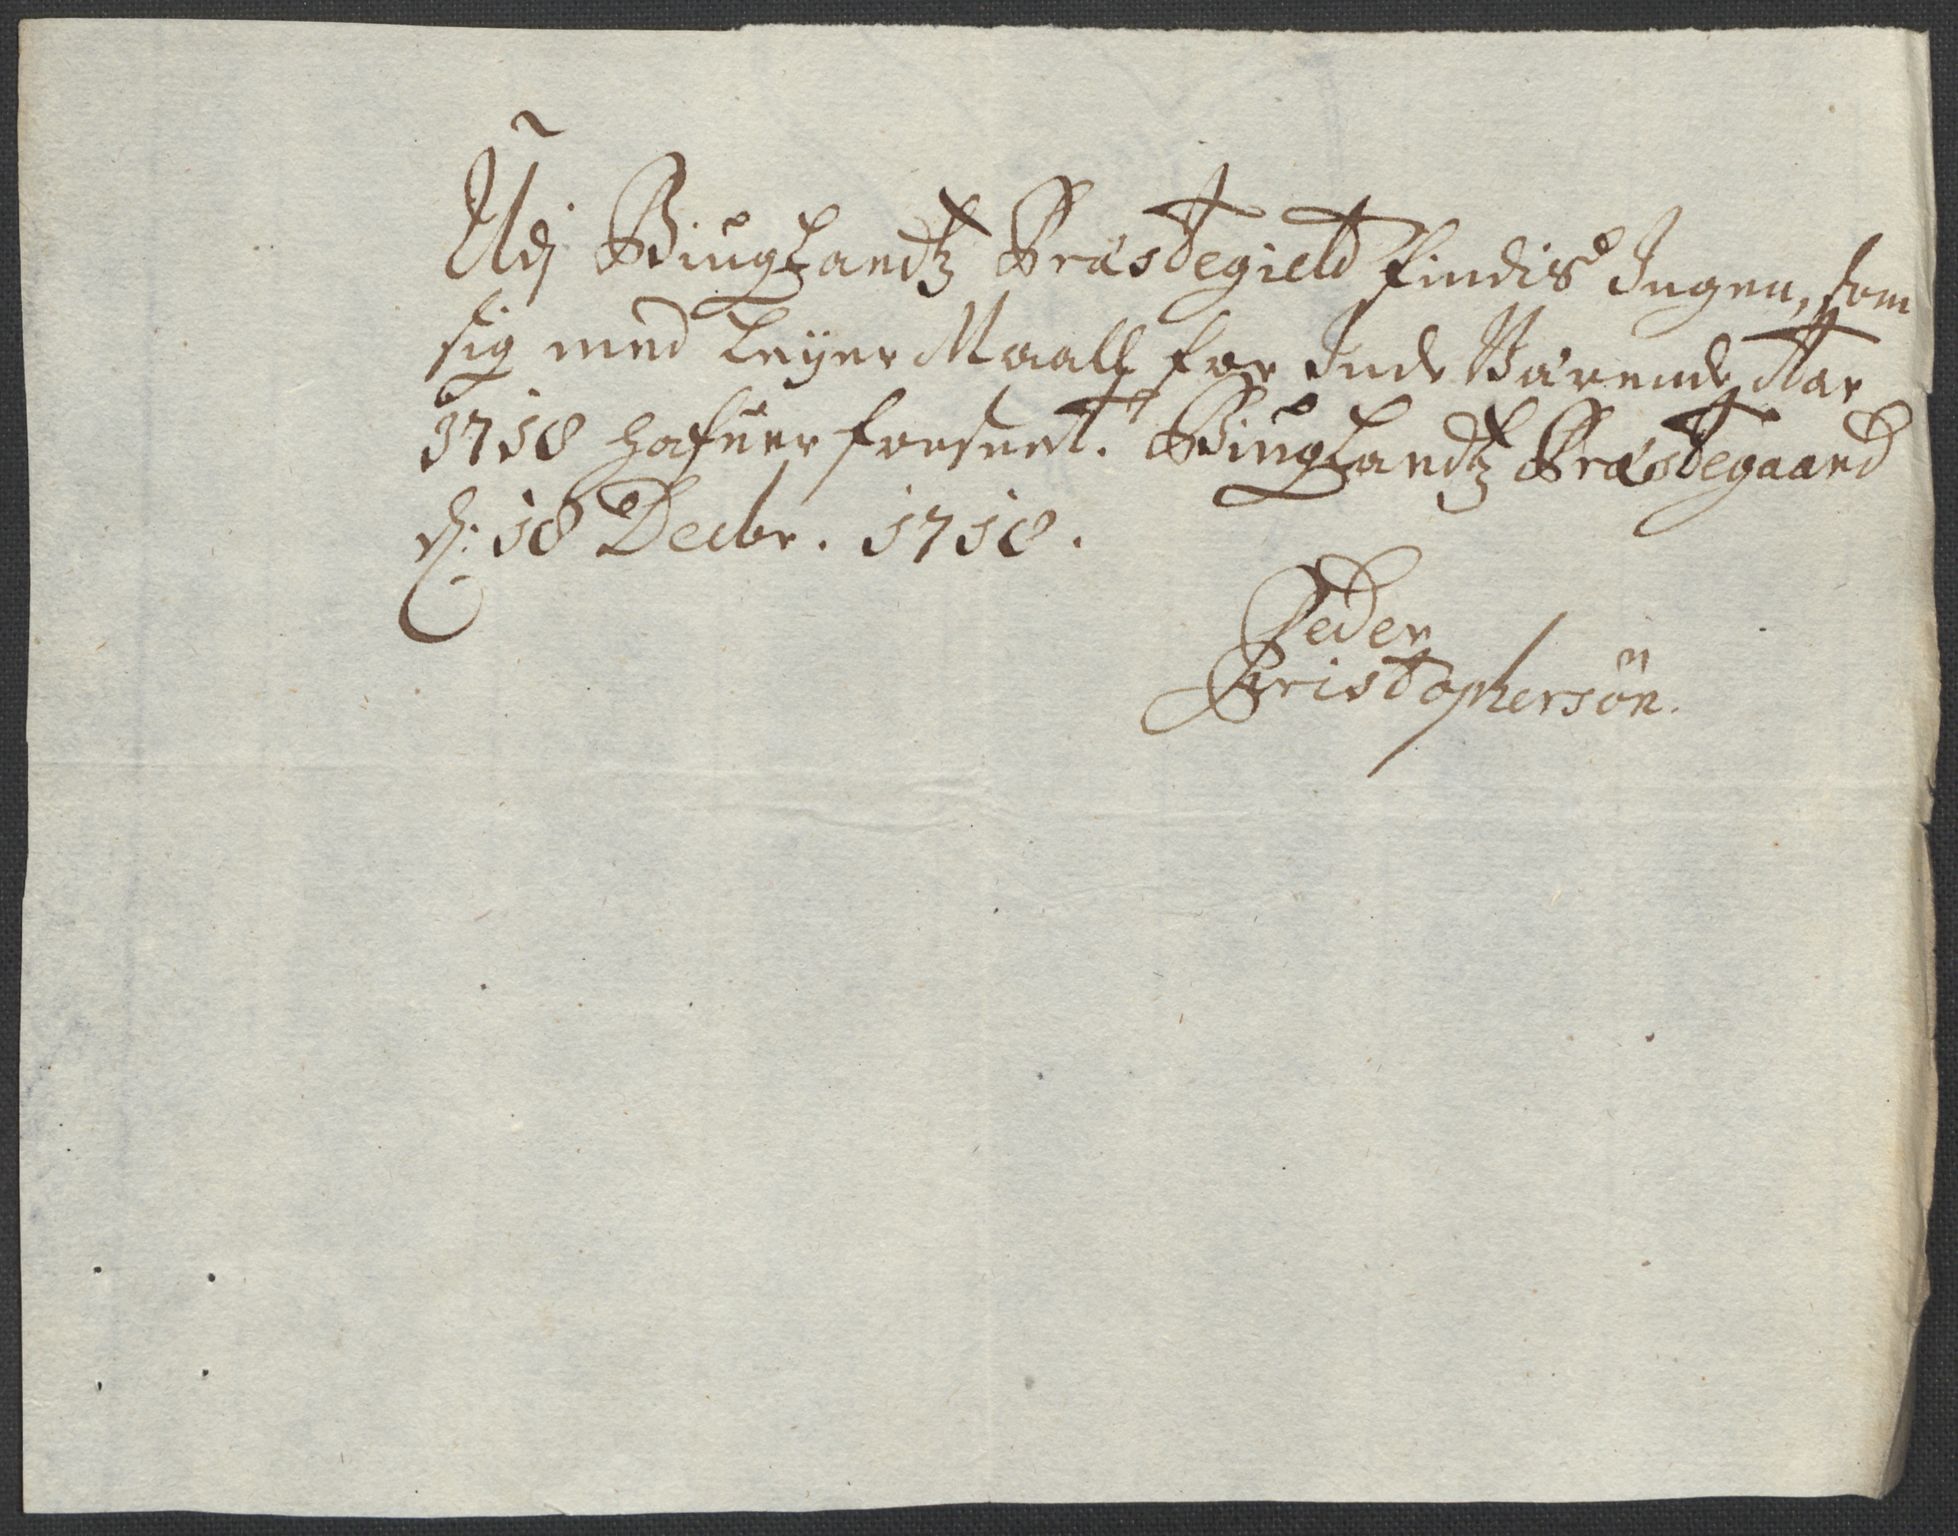 Udj Biuglandtz Præstegield findis Ingen, som
sig med Leyer Maall for Inde Værende Aar
1718 hafuer forseet. Biuglandtz Præstegaard
d: 18 Decbr. 1718.
Peder
Christophersøn.